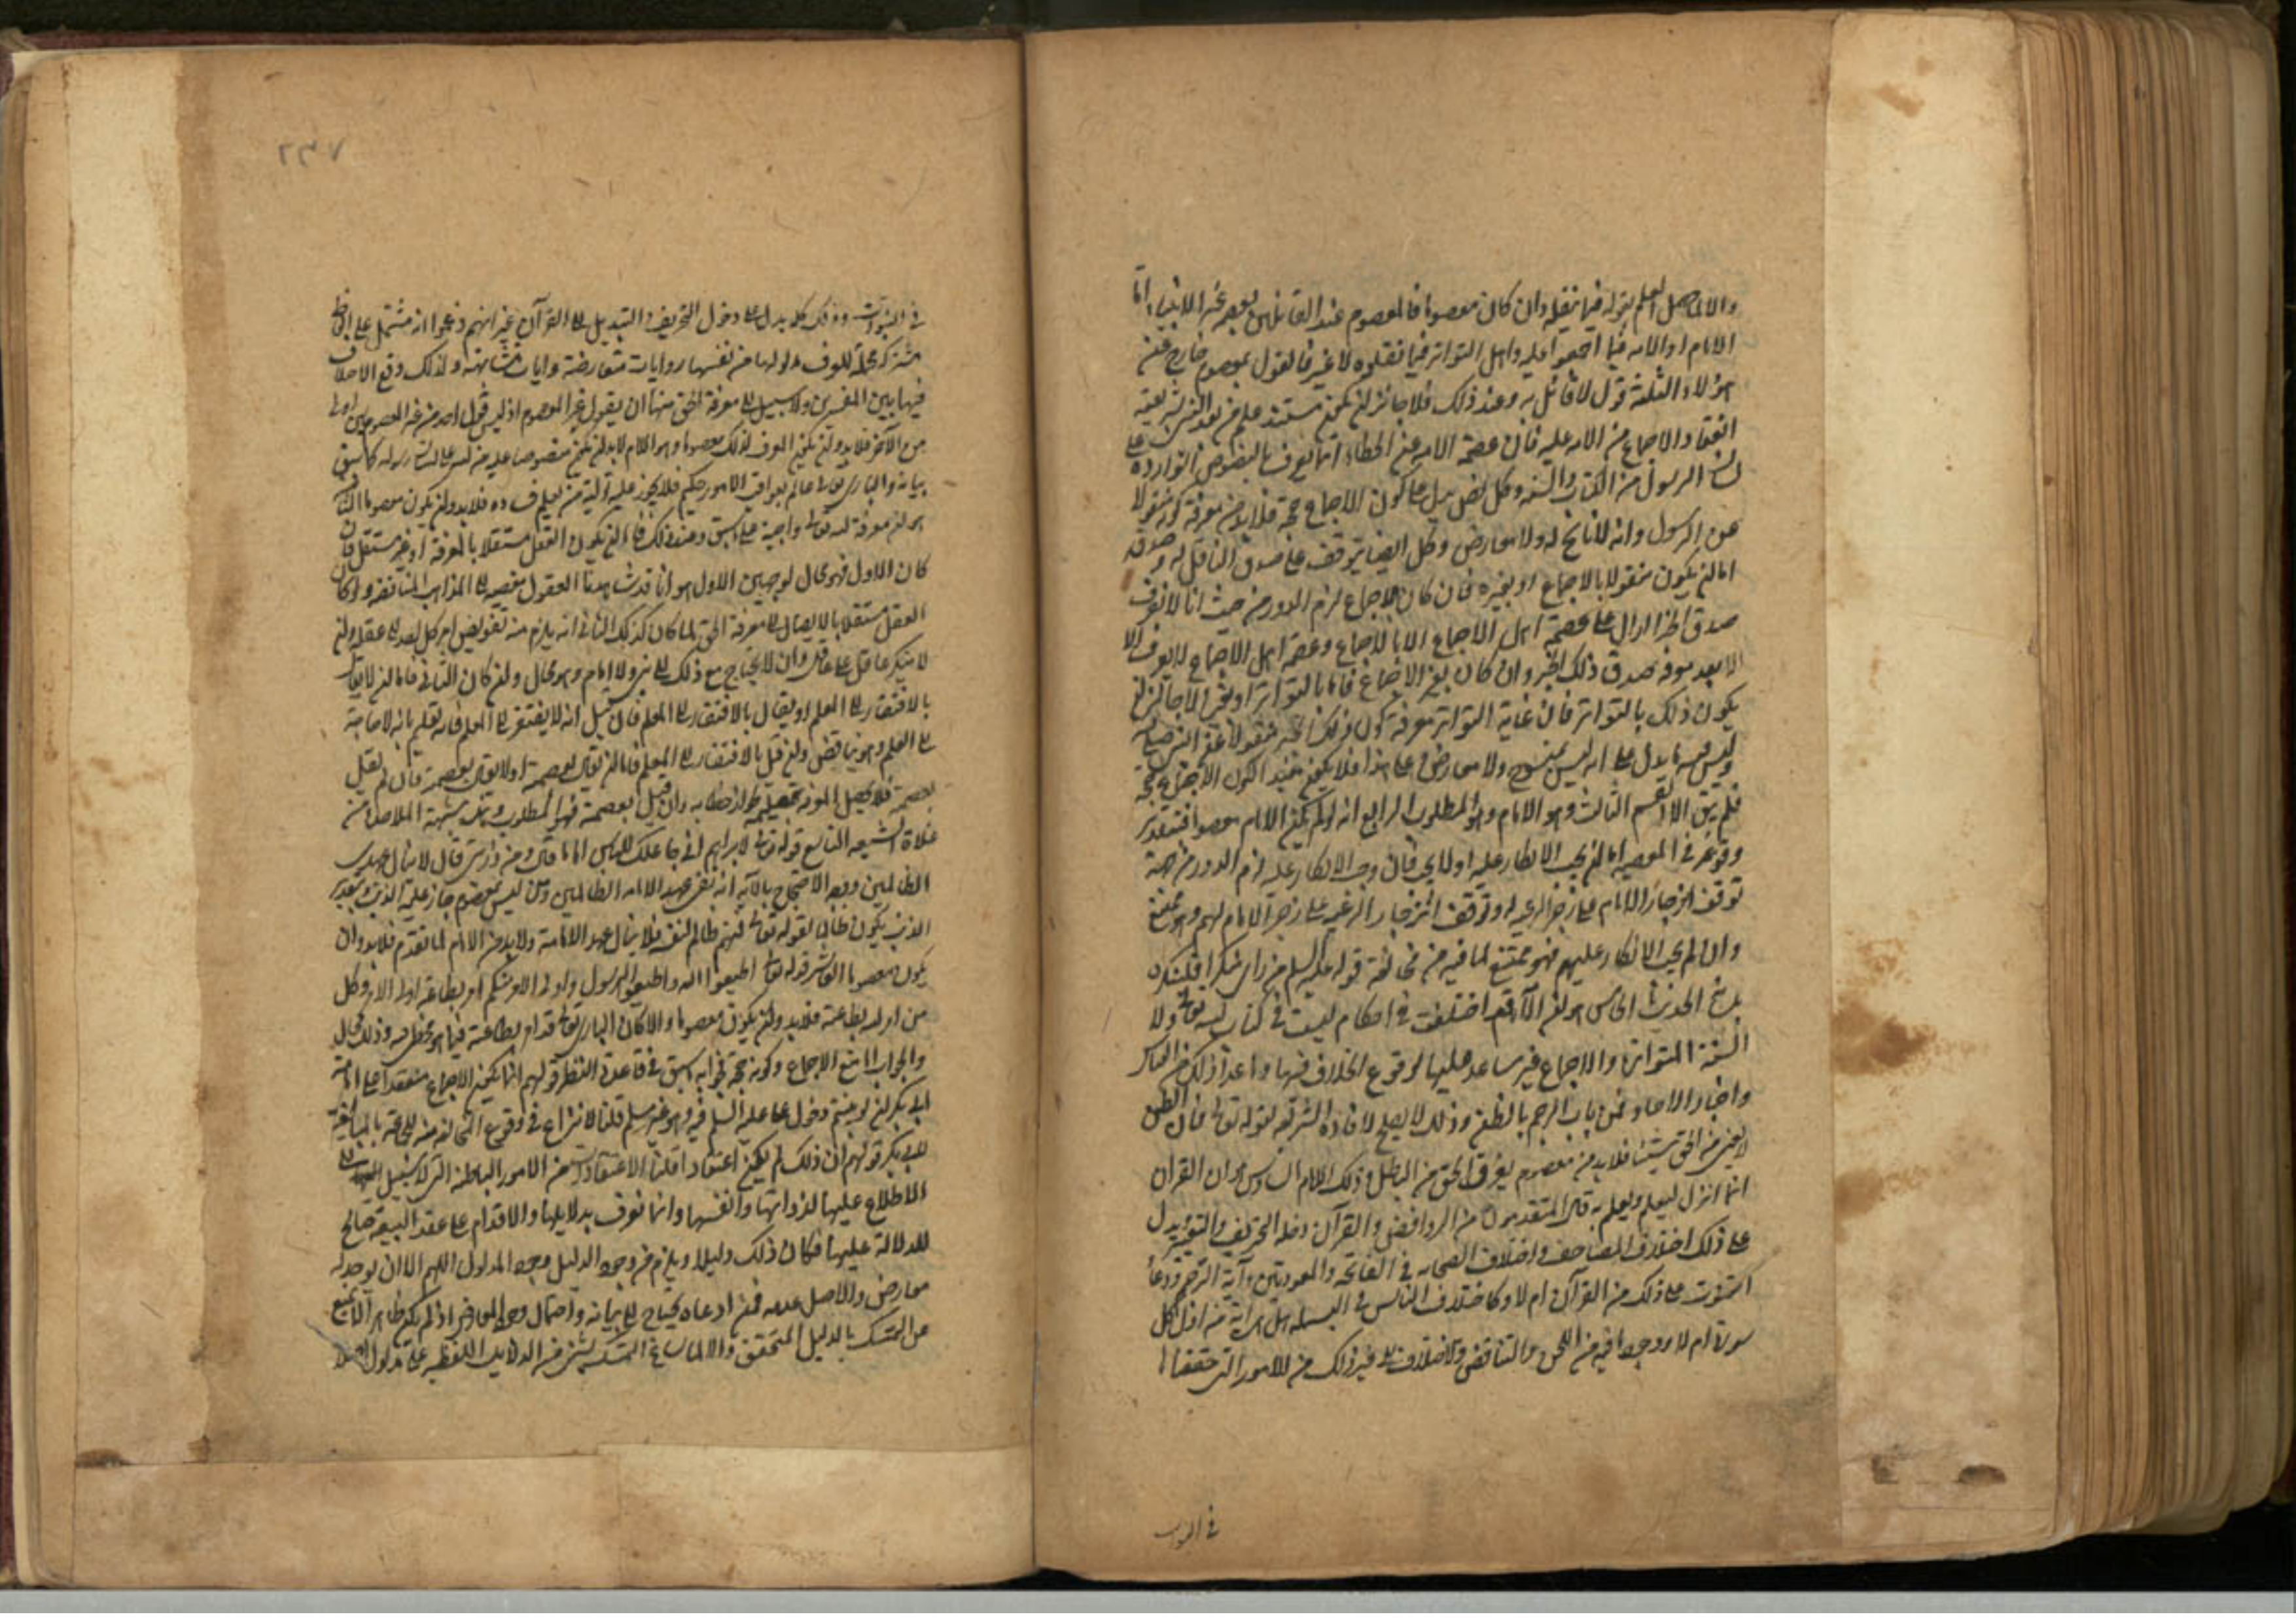 والا لما حصل العلم بقوله فيما ينقله وان كان معصوما فالمعصوم عند القائلين بعصمة غير الانبياء اما
الامام او الامه فيما اجمعوا عليه واهل التواتر فيما نقلوه لا غير فالقول بمعصوم خارج عن
هؤلاء الثلثة قول لا قائل به وعند ذلك فلا جائز ان يكون مستند علم من بعد النبى بشريعته
انعقاد الاجماع من الامه عليه فان عصمة الامه عن الخطاء انما تعرف بالنصوص الوارده على
لسان الرسول من الكتاب والسنه وكل نص يدل على كون الاجماع حجة فلا بد من معرفة كونه منقولا
عن الرسول وانه لا ناسخ له ولا معارض وكل ايضا يتوقف على صدق الناقل له وصدقه
اما ان يكون منقولا بالاجماع او بغيره فان كان بالاجماع لزم الدور من حيث انا لا نعرف
صدق الخبر الدال على عصمة اهل الاجماع الا بالاجماع وعصمة اهل الاجماع لا تعرف الا
الا بعد معرفة صدق ذلك الخبر وان كان بغير الاجماع فاما بالتواتر او بغيره لا جائز ان
يكون ذلك بالتواتر فان غاية التواتر معرفة كون ذلك الخبر منقولا عن النبى صلعم
وليس فيه ما يدل على انه ليس بمنسوخ ولا معارض وعلى هذا فلا يكون مفيدا لكون الاجماع حجة
فلم يبق الا القسم الثالث وهو الامام وهو المطلوب الرابع انه لو لم يكن الامام معصوما فبتقدير
وقوعه فى المعصيه اما ان يجب الانكار عليه او لا يجب فان وجب الانكار عليه لزم الدور من جهة
توقف انزجار الامام على زجر الرعيه له وتوقف انزجار الرعيه على زجر الامام لهم وهو ممتنع
وان لم يجب الانكار عليهم فهو ممتنع لما فيه من مخالفة قوله عليه السلم من راى منكرا فلينكره
الحديث الخامس هو ان الامة قد اختلفت فى احكام ليست فى كتاب الله تعالى ولا
السنة المتواتره والاجماع غير مساعد عليها لوقوع الخلاف فيها وما عدا ذلك من القياس
واخبار الاحاد فمن باب الرجم بالظن وذلك لا يصلح لافادة الشريعة لقوله تعالى فان الظن
لا يغنى من الحق شيئا فلا بد من معصوم يعرف الحق من الباطل وذلك الامام السادس هو ان القران
انما انزل ليعلم ويعلم به قال المتقدمون من الروافض والقرآن دخله التحريف والتبديل
على ذلك اختلاف المصاحف واختلاف الصحابه فى الفاتحه والمعوذتين وآية الرجم ودعاء
القنوت على ذلك من القرآن ام لا وكاختلاف الناس فى البسمله هل هى اية من اول كل
سورة ام لا ووجود ما فيه من اللحن والتناقض والاختلاف الى غير ذلك من الامور التى حققناها
فى النبوات
٢٣٧
فى النبوات وذلك كله يدل على دخول التحريف والتبديل على القرآن غير انهم زعموا انه مشتمل على الفاظ
مشتركة مجملة لا تعرف مدلولها من نفسها وروايات متعارضة وايات متشابهة ولذلك وقع الاختلاف
فيها بين المفسرين ولا سبيل الى معرفة الحق منها ان بقول غير المعصوم اذ ليس قول احد من غير المعصومين اولى
من الآخر فلا بد وان يكون المعرف لذلك معصوما وهو الامام لا بد ان يكون منصوصا عليه من الله على لسان رسوله كما سبق
بيانه والبارى تعالى عالم بعواقب الامور حكيم فلا يجوز عليه تولية من يعلم فساده فلا بد وان يكون معصوما الثامن
هو ان معرفة الله تعالى واجبة على ما سبق وعند ذلك فاما ان يكون العقل مستقلا بالمعرفة او غير مستقل فان
كان الاول فهو محال لوجهين الاول هو انا قد شاهدنا العقول مفضيه الى المذاهب المتناقضه ولو كان
العقل مستقلا بالايصال الى معرفة الحق لما كان كذلك الثانى انه يلزم منه تفويض امر كل احد الى عقله وان
لا ينكر عاقل على عاقل وان لا يحتاج مع ذلك الى نبى ولا امام وهو محال وان كان الثانى فاما ان لا يقال
بالافتقار الى المعلم او يقال بالافتقار الى المعلم فان قيل انه لا يفتقر الى المعلم فانه تعليم بانه لا حاجة
الى العلم وهو تناقض وان قيل بالافتقار الى المعلم فاما ان يقال بعصمته او لا يقال بعصمته فان لم يقل
بعصمته فلا يحصل المعرفة بتعليمه لجواز خطائه وان قيل بعصمته فهو المطلوب وهذه شبهة الملاحدة من
غلاة الشيعه التاسع قوله تعالى لابراهيم انى جاعلك للناس اماما قال ومن ذريتى قال لا ينال عهدى
الظالمين ووجه الاحتجاج بالآيه انه نفى عهد الامامه الظالمين ومن ليس بمعصوم جاز عليه الذنب وبتقدير
الذنب يكون ظالما لقوله تعالى فمنهم ظالم لنفسه فلا ينال عهد الامامة ولا بد من الامام لما تقدم فلا بد وان
يكون معصوما العاشر قوله تعالى اطيعوا الله واطيعوا الرسول واولى الامر منكم امر بطاعة اولى الامر وكل
من امر الله بطاعته فلا بد وان يكون معصوما والا كان البارى تعالى قد امر بطاعته فيما هو مخطئ فيه وذلك محال
والجواب اما منع الاجماع وكونه حجة فجوابه ما سبق فى قاعدة النظر قولهم انما يكون الاجماع منعقدا على امامة
ابى بكر ان لو بينتم دخول على عليه السلم فيه وهو غير مسلم قلنا لا نزاع فى وقوع المخالفة منه بالمبايعة
لابى بكر قولهم ان ذلك لم يكن اعتقادا قلنا الاعتقادات من الامور الباطنه التى لا سبيل الى
الاطلاع عليها لذواتها وانفسها وانما تعرف بدلايلها والاقدام على عقد البيعة صالح
للدلالة عليها فكان ذلك دليلا ويلزم من وجود الدليل وجود المدلول اللهم الا ان يوجد له
معارض والاصل عدمه فمن ادعاه يحتاج الى بيانه واحتمال وجود المعارض اذا لم يكن ظاهرا لا يمنع
من التمسك بالدليل المتحقق والا لما ساغ التمسك بشئ من الدلايل اللفظيه على مدلول اصلا